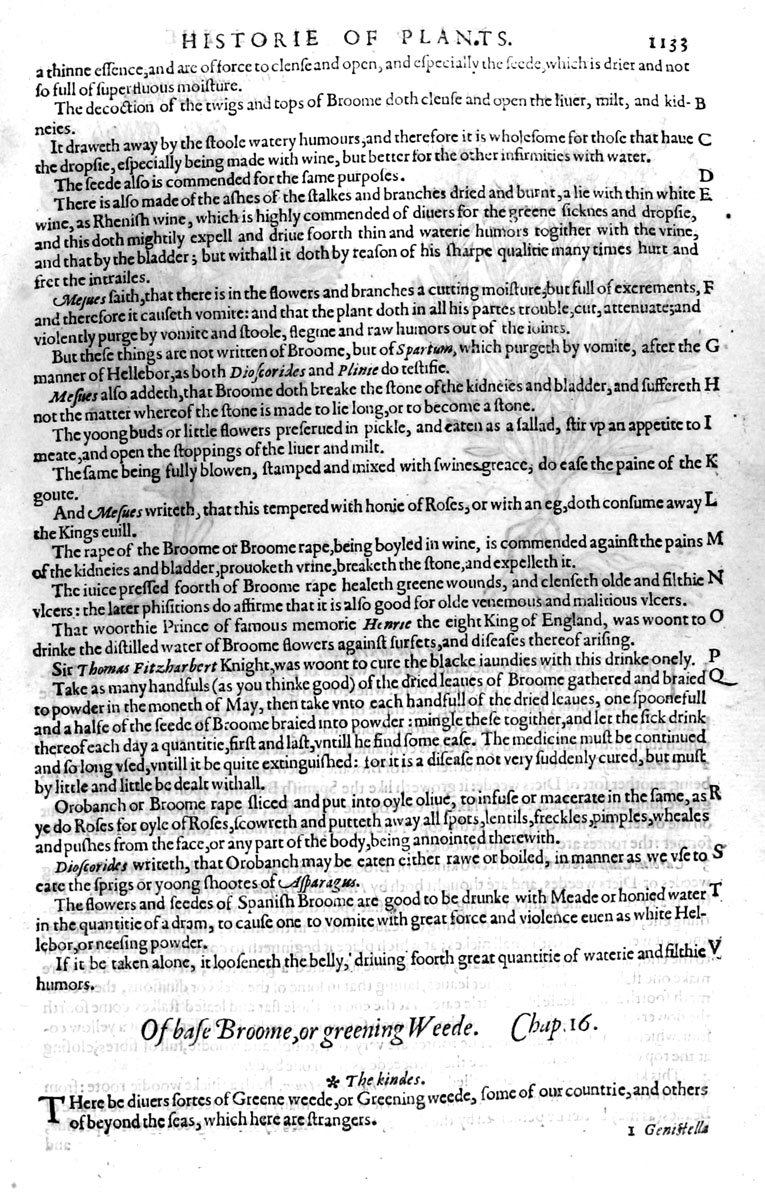 HISTORIE OF PLANTS. 1133
a thinne eſſence,and are of force to clenſe and open, and eſpecially the ſeede,which is drier and not
ſo full of ſuperfluous moiſture.
The decoction of the twigs and tops of Broome doth clenſe and open the liuer, milt, and kid- B
neies.
It draweth away by the ſtoole watery humours,and therefore it is wholeſome for thoſe that haue C
the dropſie, eſpecially being made with wine, but better for the other infirmities with water.
The ſeede alſo is commended for the ſame purpoſes. D
There is alſo made of the aſhes of the ſtalkes and branches dried and burnt, a lie with thin white E
wine, as Rheniſh wine, which is highly commended of diuers for the greene ſicknes and dropſie,
and this doth mightily expell and driue foorth thin and waterie humors togither with the vrine,
and that by the bladder; but withall it doth by reaſon of his ſharpe qualitie many times hurt and
fret the intrailes.
Meſues ſaith,that there is in the flowers and branches a cutting moiſture,but full of excrements, F
and therefore it cauſeth vomite: and that the plant doth in all his partes trouble,cut, attenuate,and
violently purge by vomite and ſtoole, flegme and raw humors out of the ioints.
But theſe things are not written of Broome, but of Spartum, which purgeth by vomite, after the G
manner of Hellebor,as both Dioſcorides and Plinie do teſtifie.
Meſues alſo addeth,that Broome doth breake the ſtone of the kidneies and bladder, and ſuffereth H
not the matter whereof the ſtone is made to lie long,or to become a ſtone.
The yoong buds or little flowers preſerued in pickle, and eaten as a ſallad, ſtir vp an appetite to I
meate,and open the ſtoppings of the liuer and milt.
The ſame being fully blowen, ſtamped and mixed with ſwines greace, do eaſe the paine of the K
goute.
And Meſues writeth, that this tempered with honie of Roſes, or with an eg,doth conſume away L
the Kings euill.
The rape of the Broome or Broome rape,being boyled in wine, is commended againſt the pains M
of the kidneies and bladder,prouoketh vrine,breaketh the ſtone,and expelleth it.
The iuice preſſed foorth of Broome rape healeth greene wounds, and clenſeth olde and filthie N
vlcers: the later phiſitions do affirme that it is alſo good for olde venemous and malitious vlcers.
That woorthie Prince of famous memorie Henrie the eight King of England, was woont to O
drinke the diſtilled water of Broome flowers againſt ſurfets,and diſeaſes thereof ariſing.
Sir Thomas Fitzharbert Knight,was woont to cure the blacke iaundies with this drinke onely. P
Take as many handfuls (as you thinke good) of the dried leaues of Broome gathered and braied Q
to powder in the moneth of May, then take vnto each handfull of the dried leaues, one ſpoonefull
and a halfe of the ſeede of Broome braied into powder : mingle theſe togither,and let the ſick drink
thereof each day a quantitie,firſt and laſt,vntill he find ſome eaſe. The medicine muſt be continued
and ſo long vſed,vntill it be quite extinguiſhed: for it is a diſeaſe not very ſuddenly cured, but muſt
by little and little be dealt withall.
Orobanch or Broome rape ſliced and put into oyle oliue, to infuſe or macerate in the ſame, as R
ye do Roſes for oyle of Roſes,ſcowreth and putteth away all ſpots,lentils,freckles,pimples,wheales
and puſhes from the face,or any part of the body,being annointed therewith.
Dioſcorides writeth, that Orobanch may be eaten either rawe or boiled, in manner as we vſe to S
eate the ſprigs or yoong ſhootes of Aſparagus.
The flowers and ſeedes of Spaniſh Broome are good to be drunke with Meade or honied water T
in the quantitie of a dram, to cauſe one to vomite with great force and violence euen as white Hel-
lebor,or neeſing powder.
If it be taken alone, it looſeneth the belly, driuing foorth great quantitie of waterie and filthie V
humors.
Of baſe Broome,or greening Weede. Chap.16.
* The kindes.
THere be diuers ſortes of Greene weede,or Greening weede, ſome of our countrie,and others
of beyond the ſeas, which here are ſtrangers.
1 Geniſtella